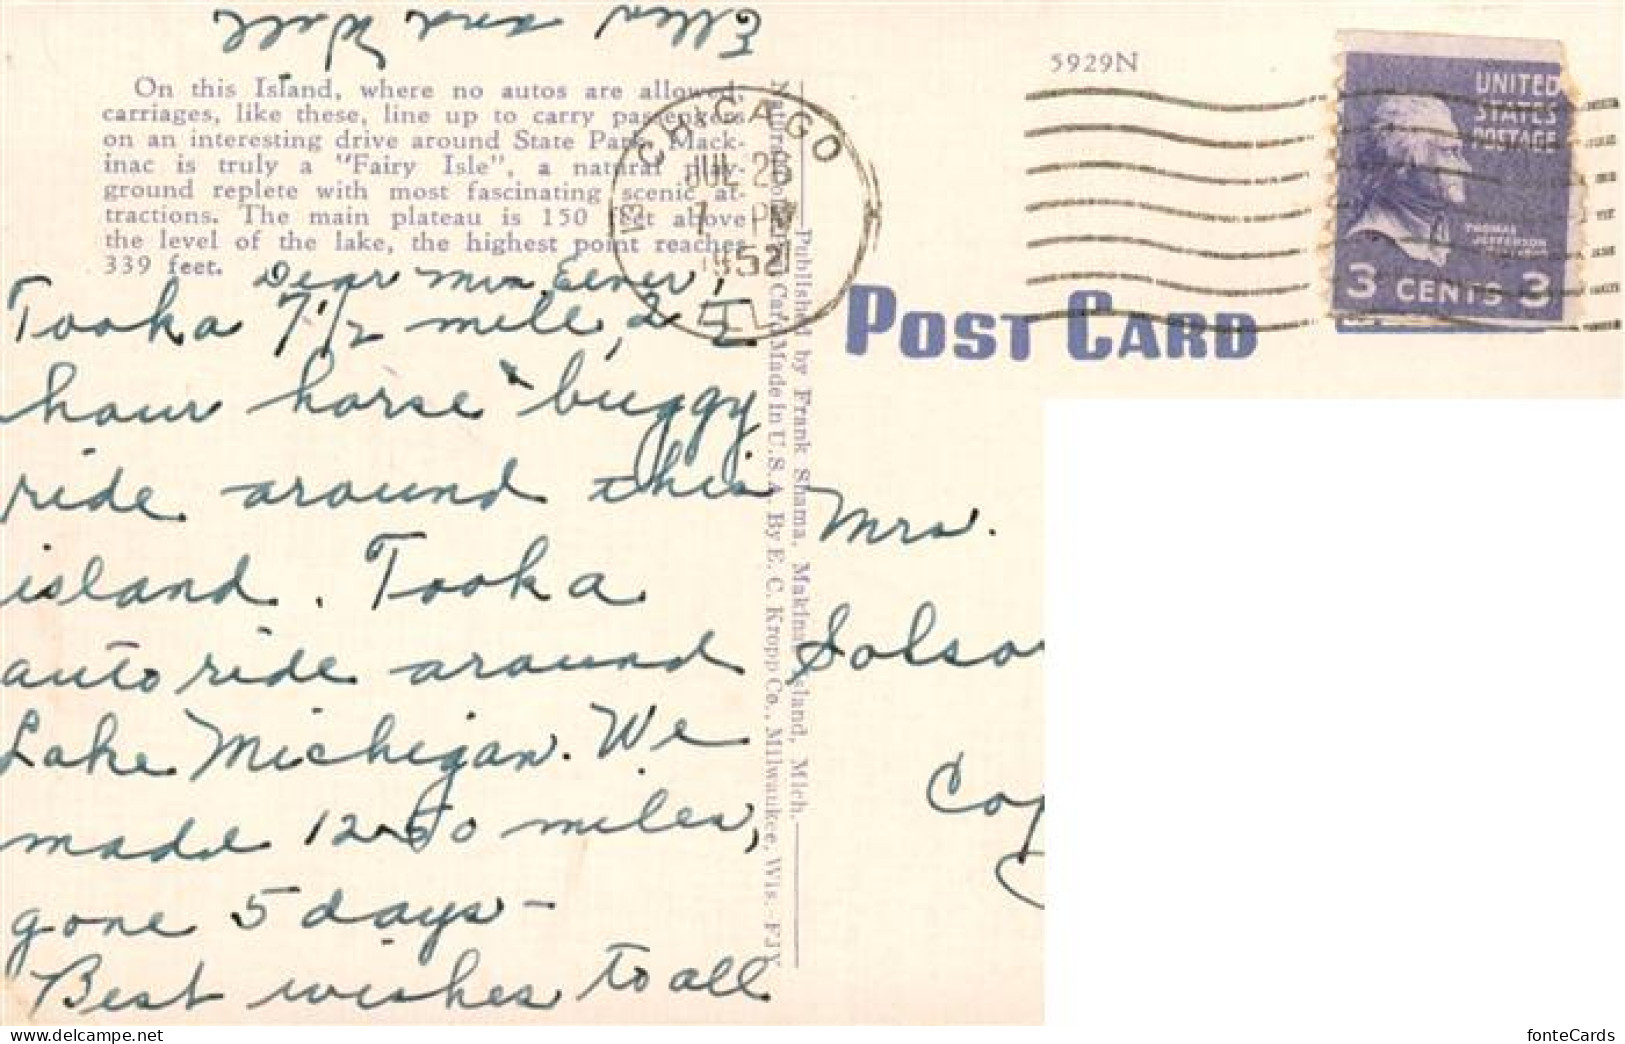 Ellen and
On this Island, where no autos are allowed,
carriages, like these, line up to carry passengers
on an interesting drive around State Park. Mack-
inac is truly a "Fairy Isle", a natural play-
ground replete with most fascinating scenic at-
tractions. The main plateau is 150 feet above
the level of the lake, the highest point reaches
339 feet.
Dear Mrs.
Took a 7 1/2 mile, 2 1/2
hour horse buggy
ride around this
island. Took a
auto ride around
Lake Michigan. We
made 1250 miles,
gone 5 days -
Best wishes to all
Natural Color Card Made in U.S.A. By E. C. Kropp Co., Milwaukee, Wis. -FJY
Published by Frank Shama, Makinac Island, Mich.
CHICAGO
JUL 2
7 PM
1952
ILL
5929N
POST CARD
UNITED
STATES
POSTAGE
THOMAS
JEFFERSON
3 CENTS 3
Mrs.
Solso
Cop
www.delcampe.net
fonteCards